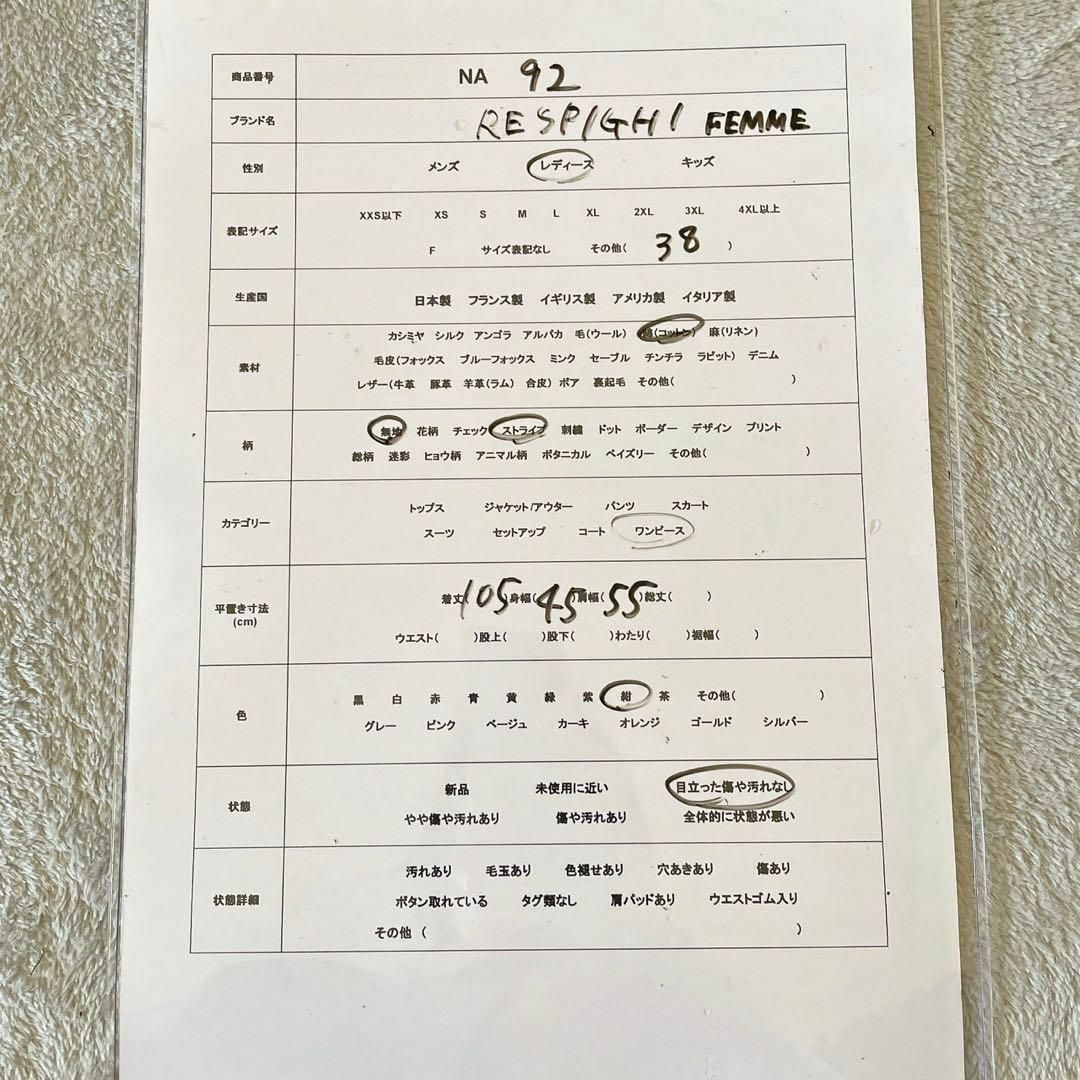 商品番号 NA 92
ブランド名 RESPIGHI FEMME
性別 メンズ レディース キッズ
表記サイズ
XXS以下 XS S M L XL 2XL 3XL 4XL以上
F サイズ表記なし その他( 38 )
生産国 日本製 フランス製 イギリス製 アメリカ製 イタリア製
素材
カシミヤ シルク アンゴラ アルパカ 毛(ウール) 綿(コットン) 麻(リネン)
毛皮(フォックス ブルーフォックス ミンク セーブル チンチラ ラビット) デニム
レザー(牛革 豚革 羊革(ラム) 合皮) ボア 裏起毛 その他( )
柄
無地 花柄 チェック ストライプ 刺繍 ドット ボーダー デザイン プリント
総柄 迷彩 ヒョウ柄 アニマル柄 ボタニカル ペイズリー その他( )
カテゴリー
トップス ジャケット/アウター パンツ スカート
スーツ セットアップ コート ワンピース
平置き寸法
(cm)
着丈( 105 )身幅( 45 )肩幅( 55 )総丈( )
ウエスト( )股上( )股下( )わたり( )裾幅( )
色
黒 白 赤 青 黄 緑 紫 紺 茶 その他( )
グレー ピンク ベージュ カーキ オレンジ ゴールド シルバー
状態
新品 未使用に近い 目立った傷や汚れなし
やや傷や汚れあり 傷や汚れあり 全体的に状態が悪い
状態詳細
汚れあり 毛玉あり 色褪せあり 穴あきあり 傷あり
ボタン取れている タグ類なし 肩パッドあり ウエストゴム入り
その他 ( )